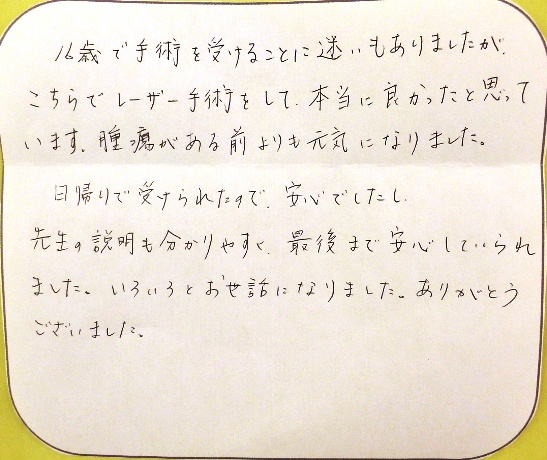 16歳で手術を受けることに迷いもありましたが、
こちらでレーザー手術をして、本当に良かったと思って
います。腫瘍がある前よりも元気になりました。
日帰りで受けられたので、安心でしたし、
先生の説明も分かりやすく、最後まで安心していられ
ました。いろいろとお世話になりました。ありがとう
ございました。